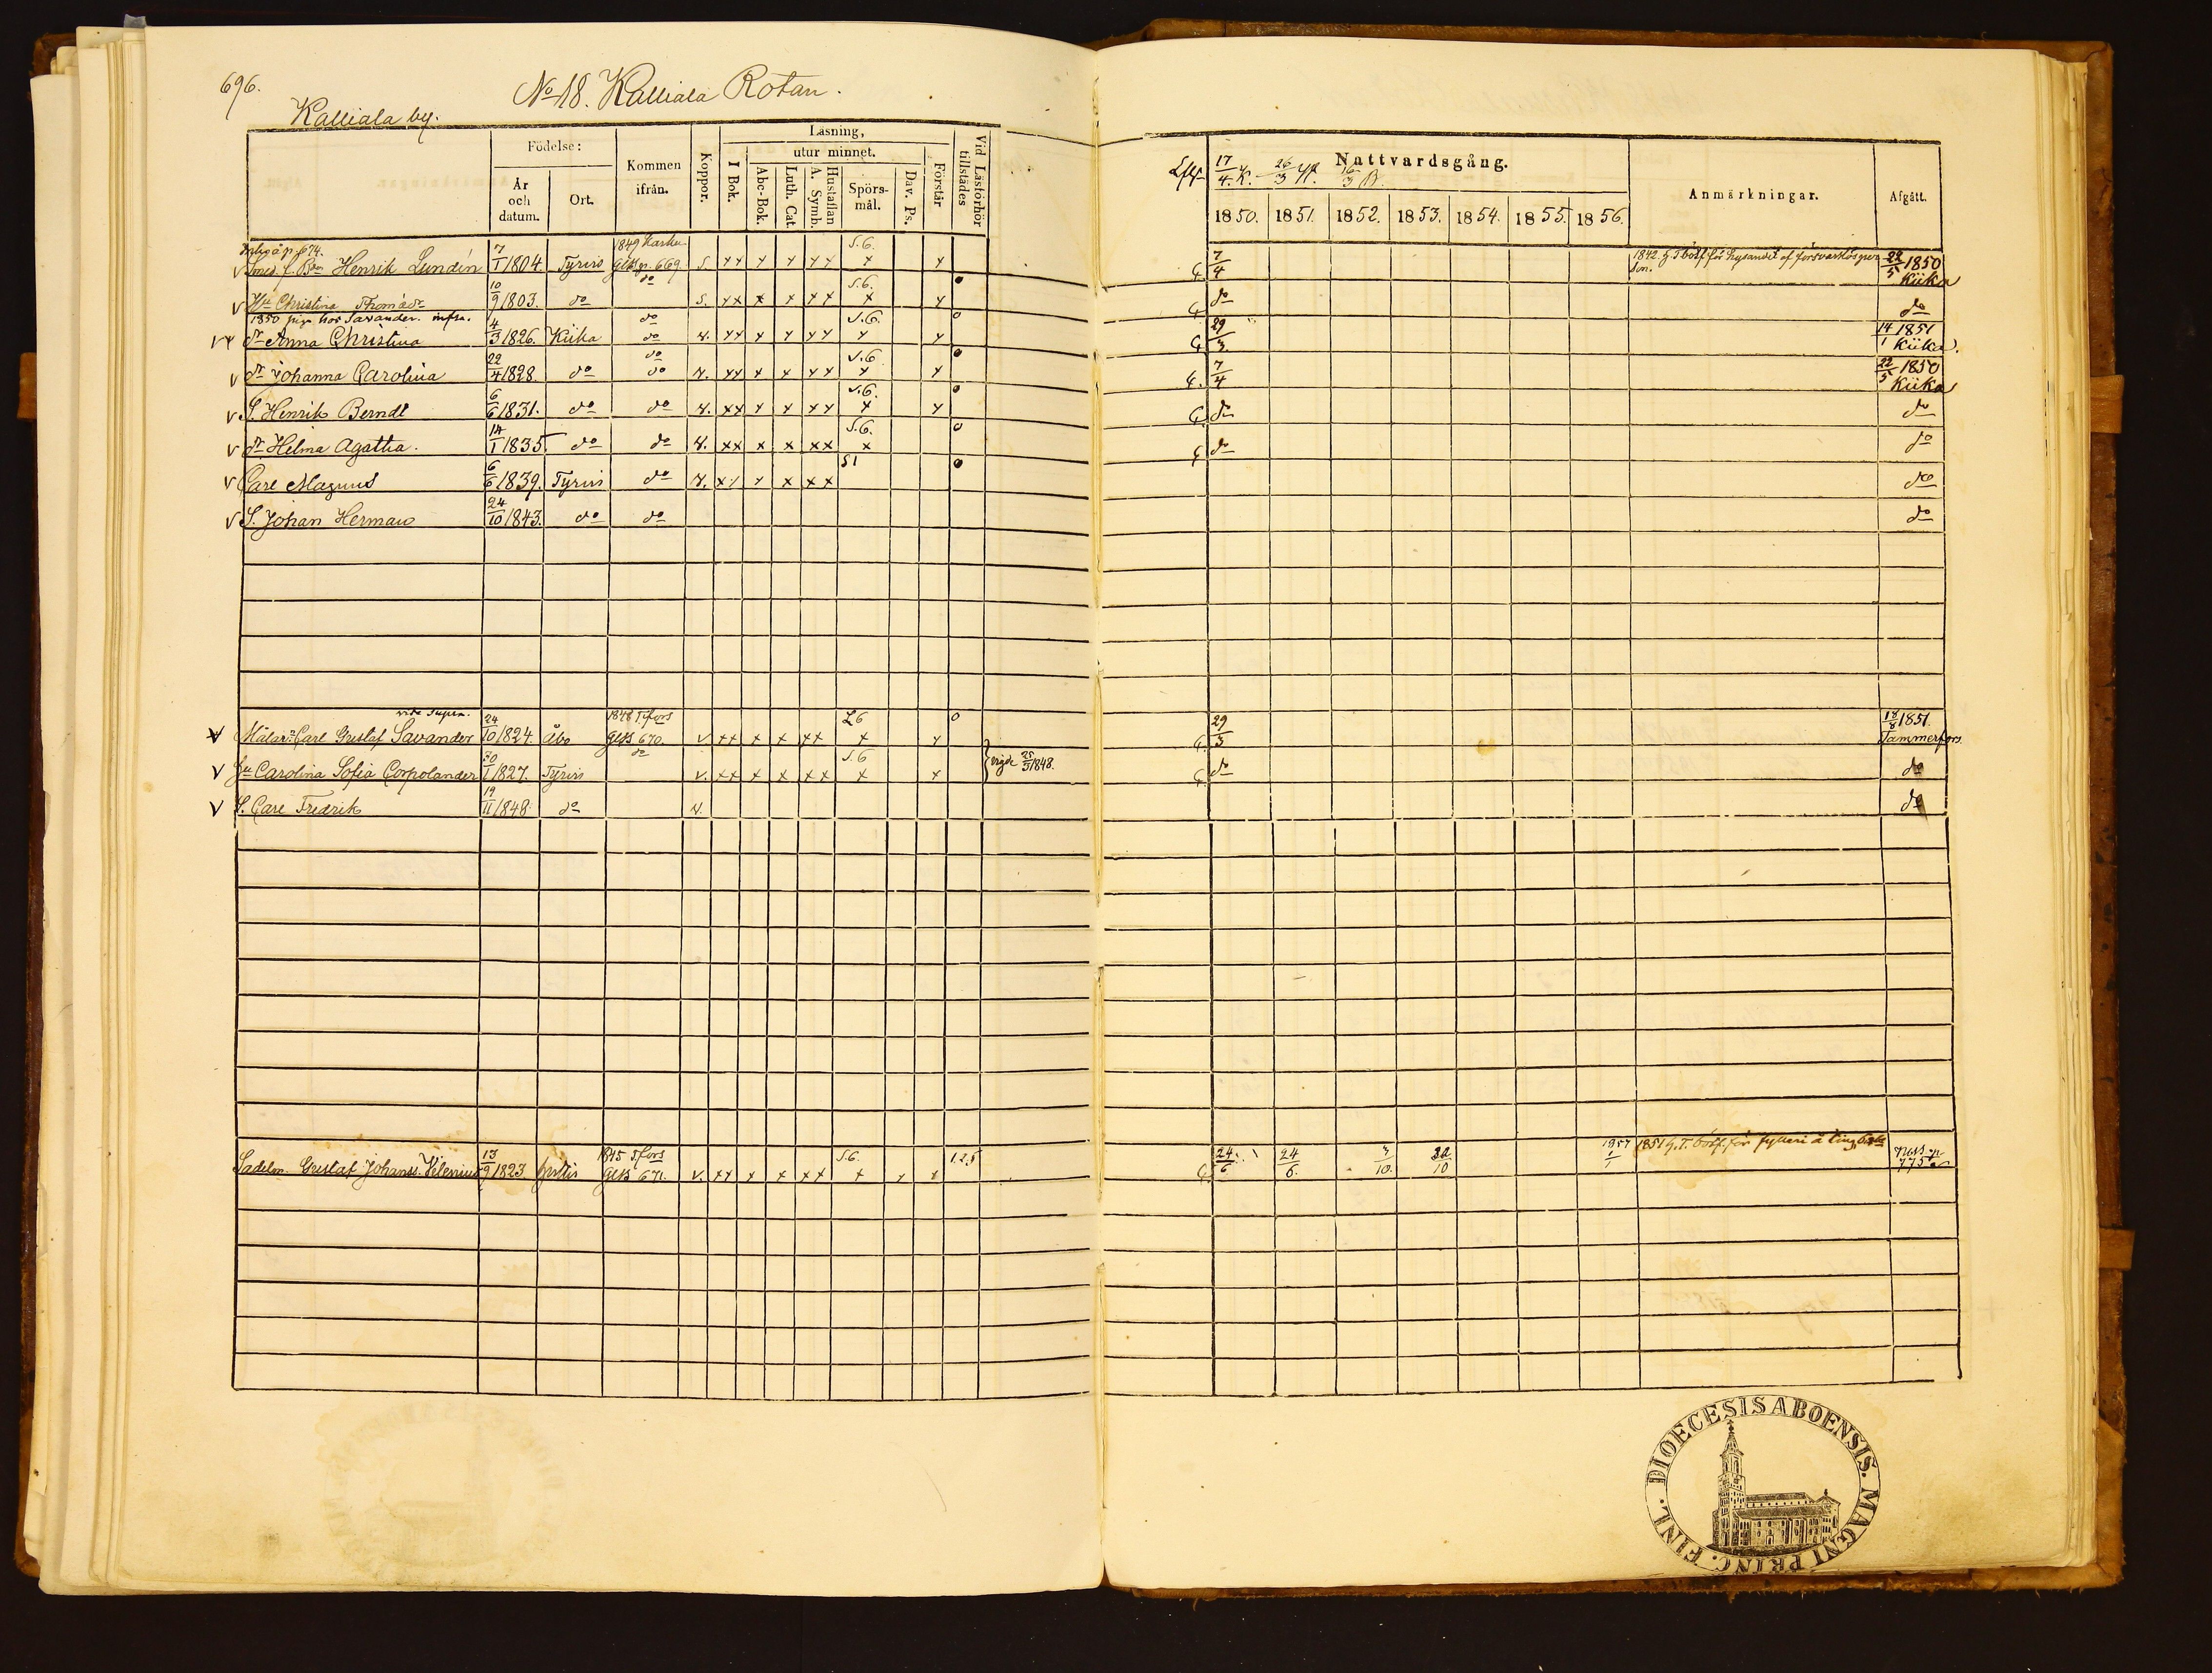 696.
No 18. Kalliala Rotan.
Kalliala by.
Födelse:
År och datum.
Ort.
Kommen ifrån.
Koppor.
Läsning,
I Bok.
utur minnet.
Abc-Bok.
Luth. Cat.
Hustaflan A. Symb.
Spörs-mål.
Dav. Ps.
Förstår
Vid Läsförhör tillstädes
17/4 K. 26/3 16/3 B.
Nattvardsgång.
1850. 1851. 1852. 1853. 1854. 1855. 1856.
Anmärkningar.
Afgått.
p. 674. 1849 Karku S.6.
Smed. f. Henrik Lundén 7/1 1804. Tyrvis GlKB p. 669 S. xx x x xx x x 7/4 1842 för hysandet af försvarslös person. 22/5 1850 Kiika
Hu Christina Thomasdr 10/9 1803. do do S. xx x x xx S.6. x x o do do
1850 piga hos Savander. infra. do S.6. o
dr Anna Christina 4/3 1826. Kiika do v. xx x x xx x x 29/3 14/1 1851 Kiika.
dr Johanna Carolina 22/4 1828. do do v. xx x x xx S.6 x x o 7/4 22/5 1850 Kiika
S. Henrik Berndt 6/6 1831. do do v. xx x x xx S.6. x x o do do
dr Helma Agatha. 14/1 1835. do do v. xx x x xx S.6. x o do do
Carl Magnus 6/6 1839. Tyrvis do v. xx x x xx S1 o do
S. Johan Herman 24/10 1843. do do do
vide supra. 1848 T.fors L6 o
Målar Carl Gustaf Savander 24/10 1824. Åbo GlKB 670. v xx x x xx x x 29/3 18/8 1851. Tammerfors.
Hu Carolina Sofia Corpolander 30/1 1827. Tyrvis do v. xx x x xx S.6 x x vigde 25/3 1848. do do
S. Carl Fredrik 19/11 1848. do v. do
1845 T.fors S.6. 1.2.5
Sadelm. Gustaf Johanss. Vilenius 13/9 1823. GlKB 671. v. xx x x xx x x x 24/6 24/6. 7/10. 22/10 1857 1/1 1851 G.T. bötf. för fylleri å ting NKB p 775
DIOECESIS ABOENSIS. MAGNI PRINC. FINL.